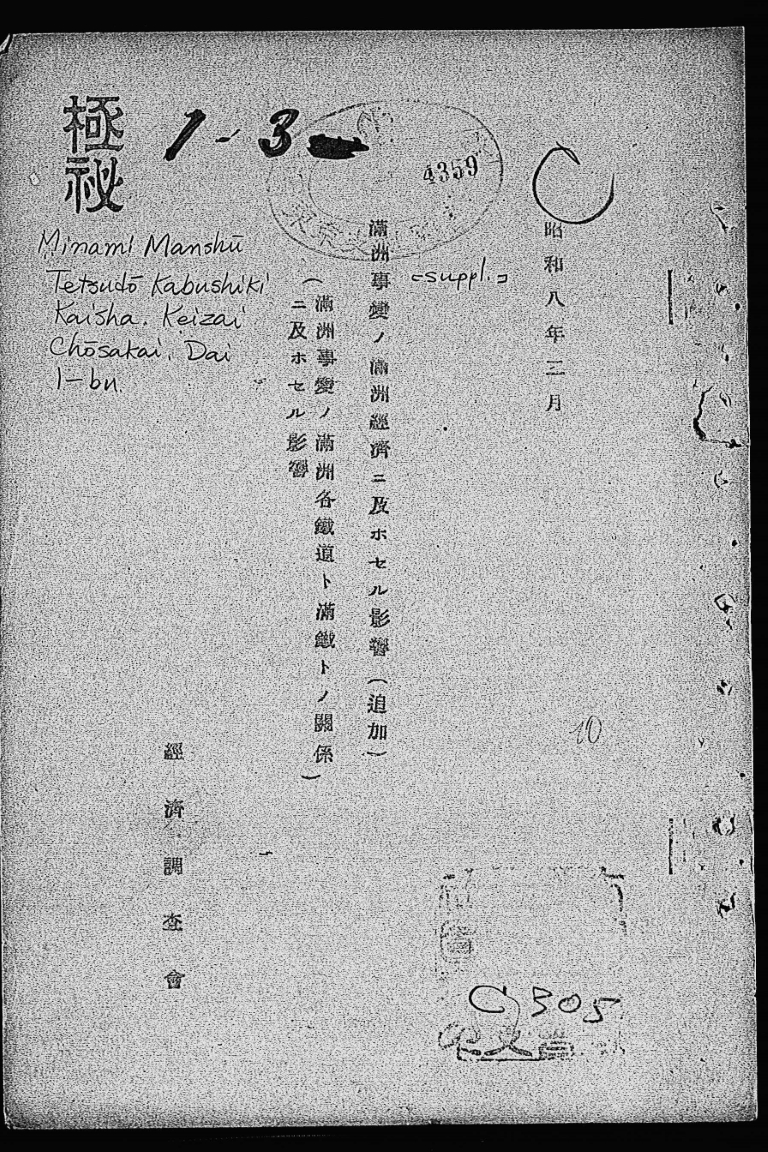 極秘
1-3
4359
昭和八年三月
満洲事變ノ満洲經濟ニ及ホセル影響(追加)
<suppl.>
(満洲事變ノ満洲各鐵道ト満鐵トノ關係
ニ及ホセル影響)
Minami Manshū
Tetsudō Kabushiki
Kaisha. Keizai
Chōsakai. Dai
1-bu.
經濟調査會
10
C305